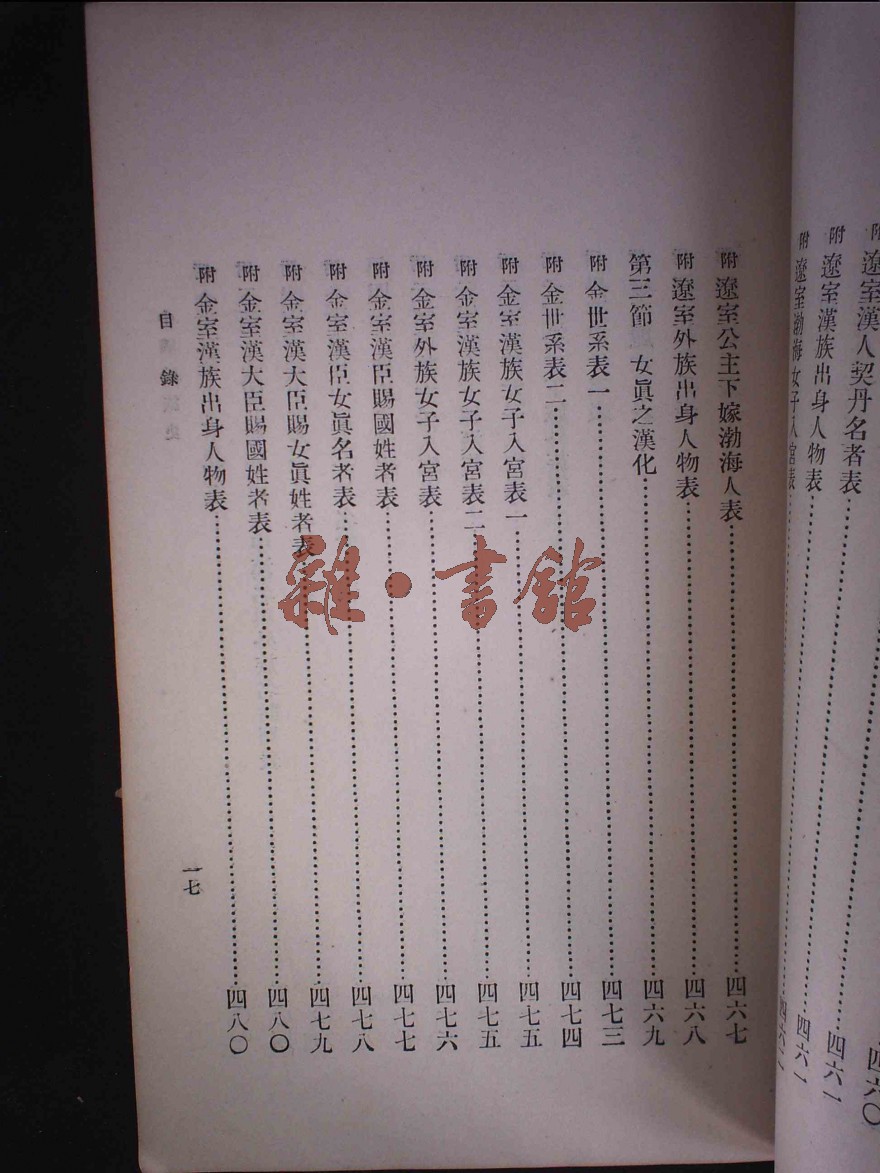 附 遼室漢人契丹名者表……四六〇
附 遼室漢族出身人物表……四六一
附 遼室渤海女子入宮表……四六二
附 遼室公主下嫁渤海人表……四六七
附 遼室外族出身人物表……四六八
第三節 女眞之漢化……四六九
附 金世系表一……四七三
附 金世系表二……四七四
附 金室漢族女子入宮表一……四七五
附 金室漢族女子入宮表二……四七五
附 金室外族女子入宮表……四七六
附 金室漢臣賜國姓者表……四七七
附 金室漢臣女眞名者表……四七八
附 金室漢大臣賜女眞姓者表……四七九
附 金室漢大臣賜國姓者表……四八〇
附 金室漢族出身人物表……四八〇
目 錄
一七
雜·書館